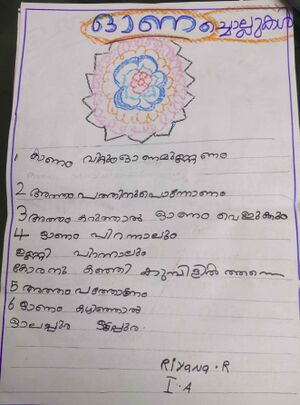 ഓണച്ചൊല്ലുകൾ
1 കാണം വിറ്റുംഓണമുണ്ണണം
2 അത്തം പത്തിനുപൊന്നോണം
3 അത്തം കറുത്താൽ ഓണം വെളുക്കും
4 ഓണം പിറന്നാലും
ഉണ്ണി പിറന്നാലും
കോരനു കഞ്ഞി കുമ്പിളിൽ തന്നെ
5 അത്തം പത്തോണം
6 ഓണം കഴിഞ്ഞാൽ
ഓലപ്പുര ഓട്ടപ്പുര
Riyana . R
I . A